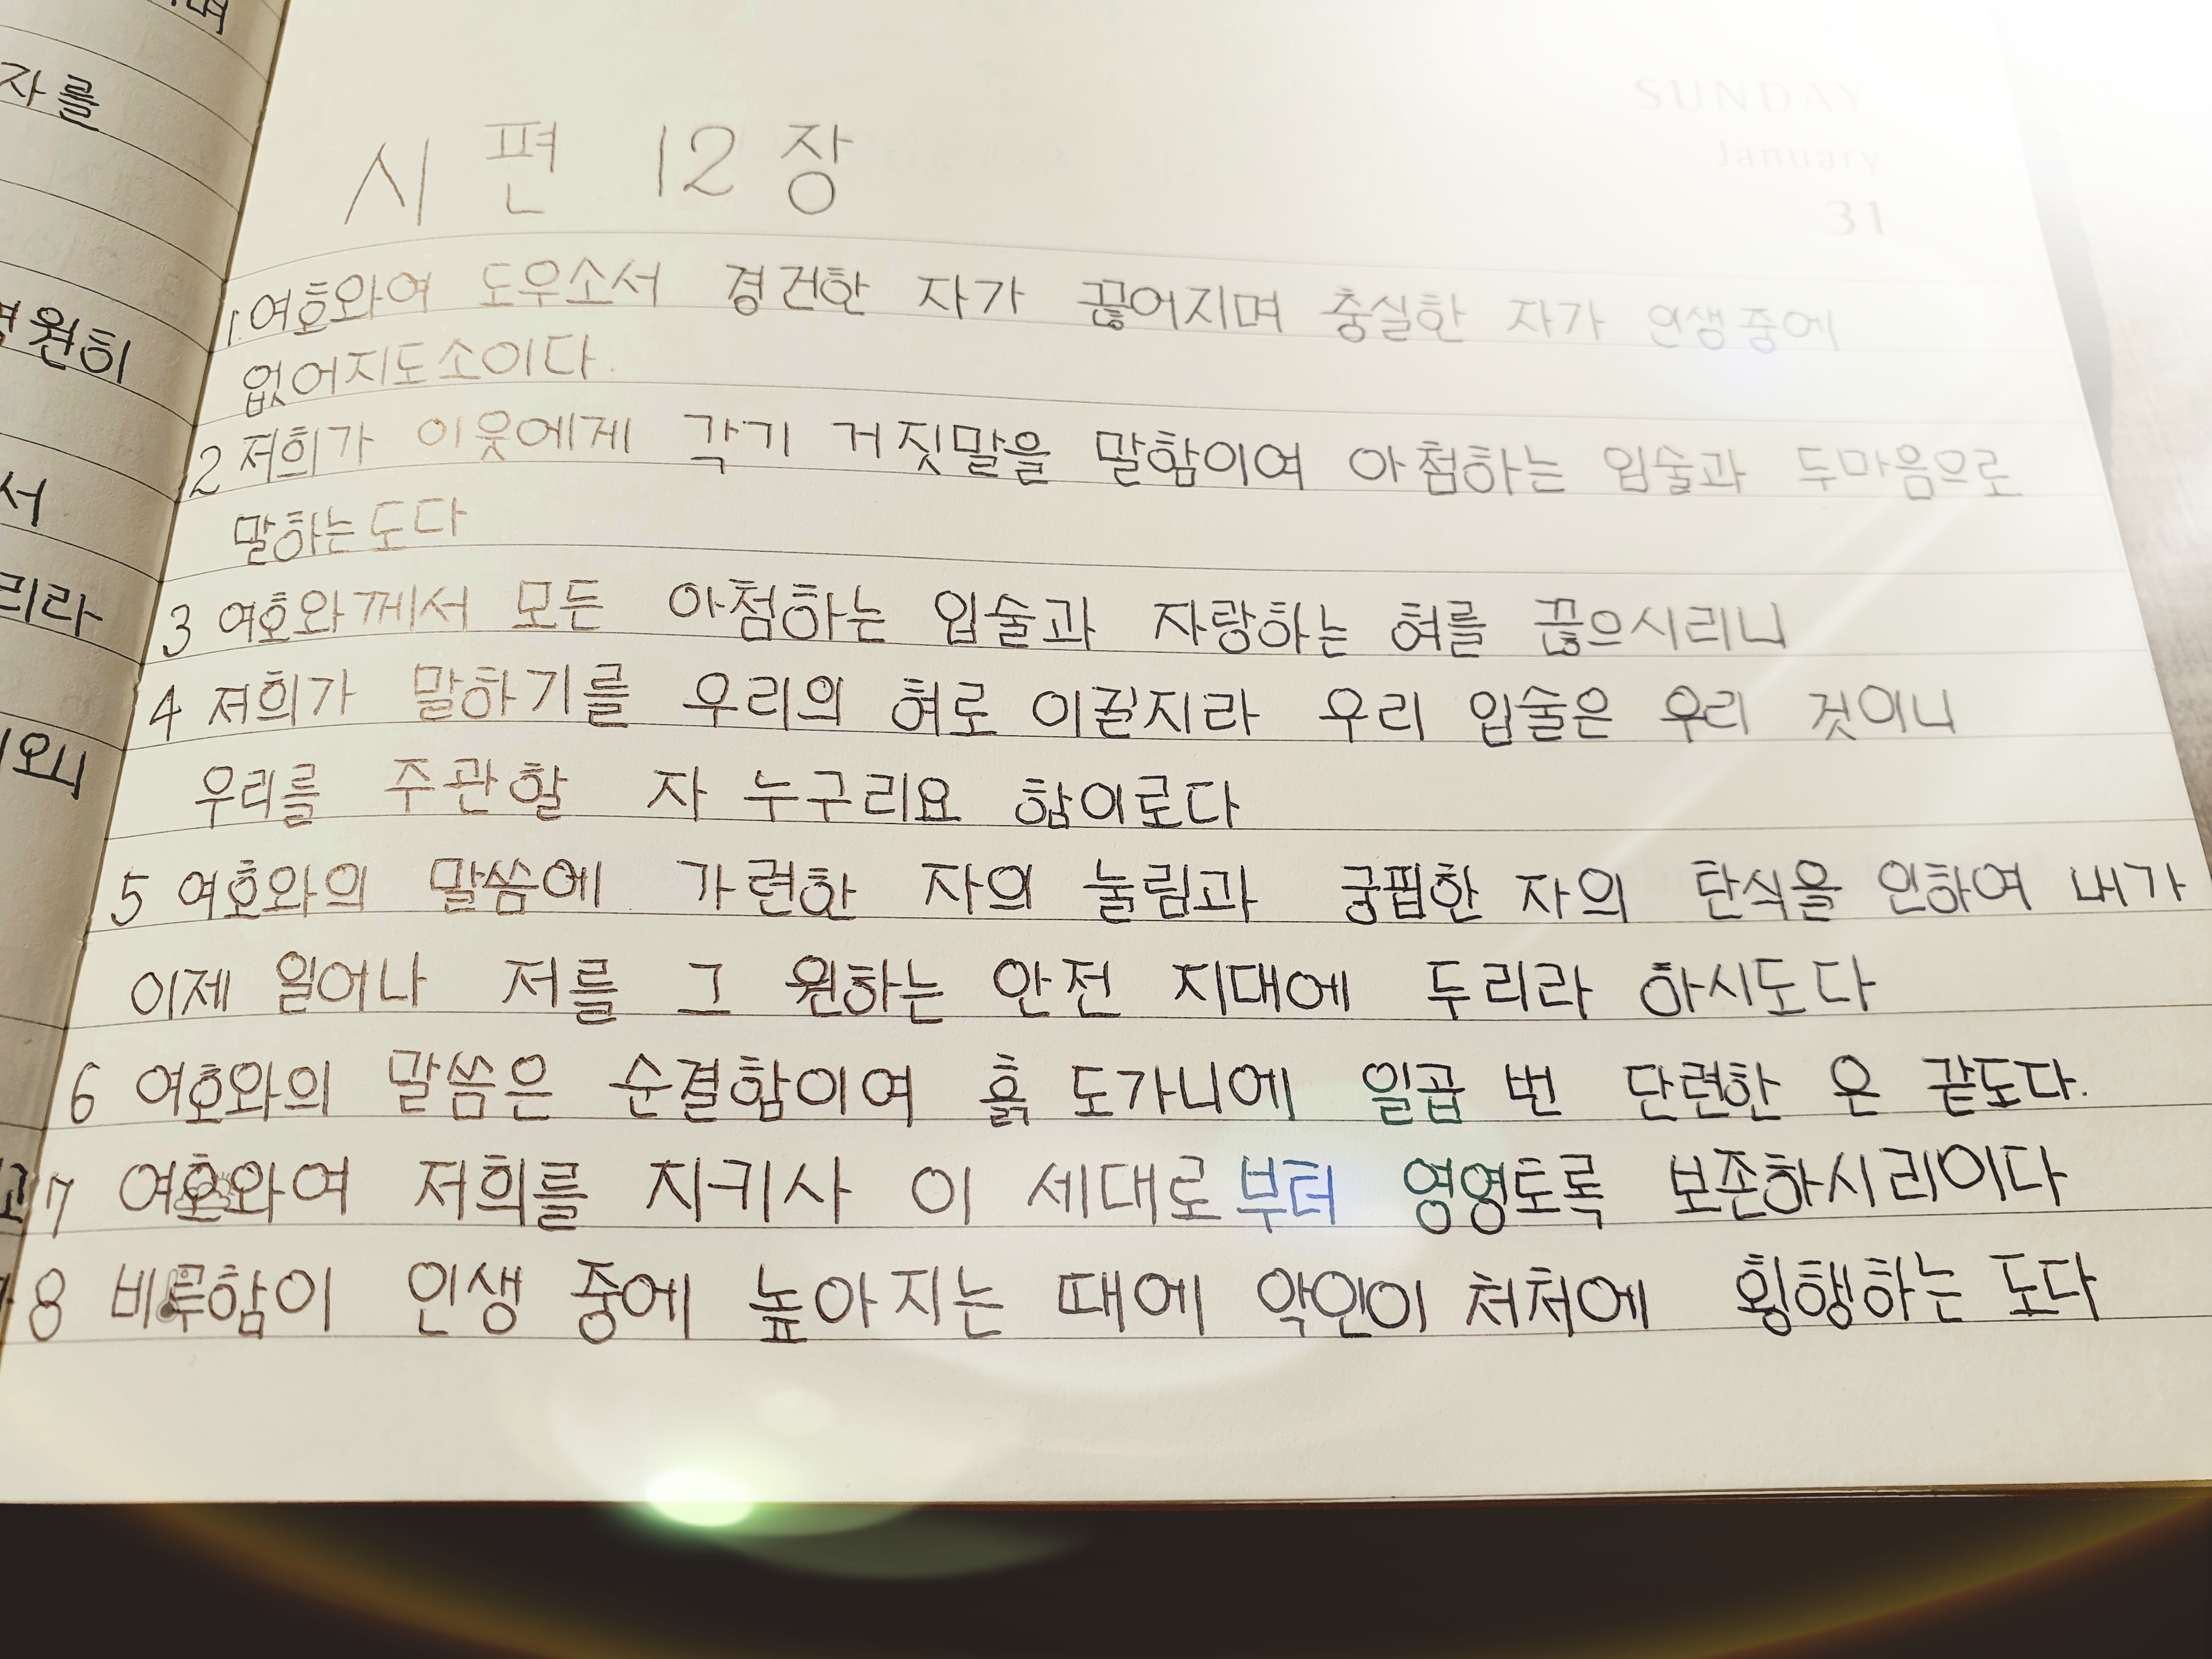 자를
원히
서
리라
SUNDAY
January
31
시편 12장
1. 여호와여 도우소서 경건한 자가 끊어지며 충실한 자가 인생중에
없어지도소이다.
2 저희가 이웃에게 각기 거짓말을 말함이여 아첨하는 입술과 두마음으로
말하는도다
3 여호와께서 모든 아첨하는 입술과 자랑하는 혀를 끊으시리니
4 저희가 말하기를 우리의 혀로 이길지라 우리 입술은 우리 것이니
우리를 주관할 자 누구리요 함이로다
5 여호와의 말씀에 가련한 자의 눌림과 궁핍한 자의 탄식을 인하여 내가
이제 일어나 저를 그 원하는 안전 지대에 두리라 하시도다
6 여호와의 말씀은 순결함이여 흙 도가니에 일곱 번 단련한 은 같도다.
7 여호와여 저희를 지키사 이 세대로부터 영영토록 보존하시리이다
8 비루함이 인생 중에 높아지는 때에 악인이 처처에 횡행하는 도다